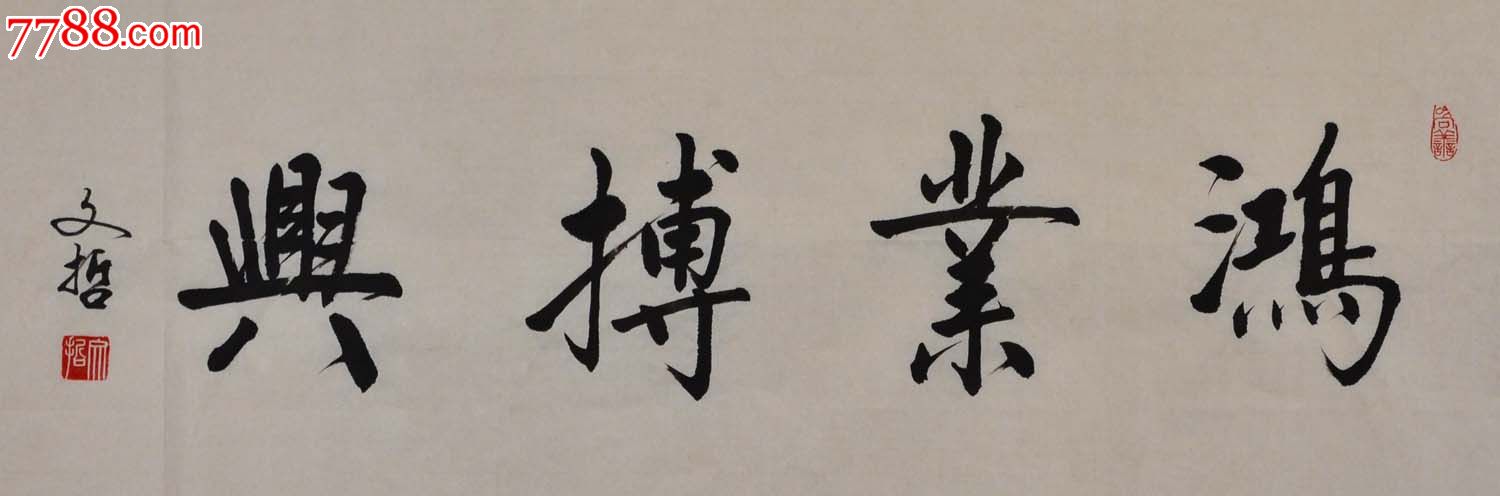 7788.com
鴻業搏興
文哲
文哲